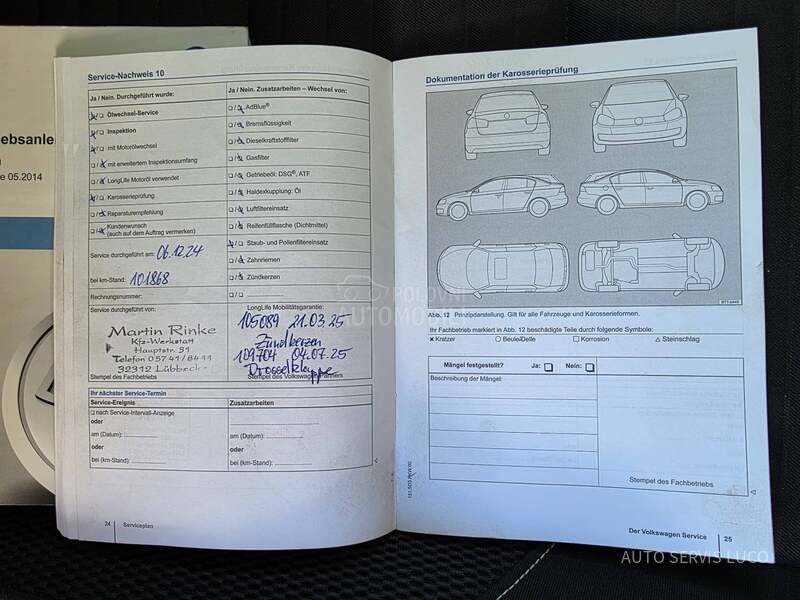 ebsanle
e 05.2014
Service-Nachweis 10
Ja / Nein. Durchgeführt wurde:
Ölwechsel-Service
Inspektion
mit Motorölwechsel
mit erweitertem Inspektionsumfang
LongLife Motoröl verwendet
Karosserieprüfung
Reparaturempfehlung
Kundenwunsch
(auch auf dem Auftrag vermerken)
Service durchgeführt am: 06.12.24
bei km-Stand: 101868
Rechnungsnummer:
Service durchgeführt von:
Martin Rinke
Kfz-Werkstatt
Hauptstr. 91
Telefon 05741/8411
32312 Lübbecke
Stempel des Fachbetriebs
Ja / Nein. Zusatzarbeiten – Wechsel von:
AdBlue®
Bremsflüssigkeit
Dieselkraftstofffilter
Gasfilter
Getriebeöl: DSG®, ATF
Haldexkupplung: Öl
Luftfiltereinsatz
Reifenfüllflasche (Dichtmittel)
Staub- und Pollenfiltereinsatz
Zahnriemen
Zündkerzen
LongLife Mobilitätsgarantie:
105089 21.03.25
Zündkerzen
109704 04.07.25
Drosselklappe
Stempel des Volkswagen Partners
Ihr nächster Service-Termin
Service-Ereignis
nach Service-Intervall-Anzeige
oder
am (Datum):
oder
bei (km-Stand):
Zusatzarbeiten
am (Datum):
oder
bei (km-Stand):
24 Serviceplan
Dokumentation der Karosserieprüfung
Abb. 12 Prinzipdarstellung. Gilt für alle Fahrzeuge und Karosserieformen.
Ihr Fachbetrieb markiert in Abb. 12 beschädigte Teile durch folgende Symbole:
Kratzer Beule/Delle Korrosion Steinschlag
Mängel festgestellt? Ja: Nein:
Beschreibung der Mängel:
Stempel des Fachbetriebs
Der Volkswagen Service 25
POLOVNI
AUTOMOBILI
AUTO SERVIS LUCO